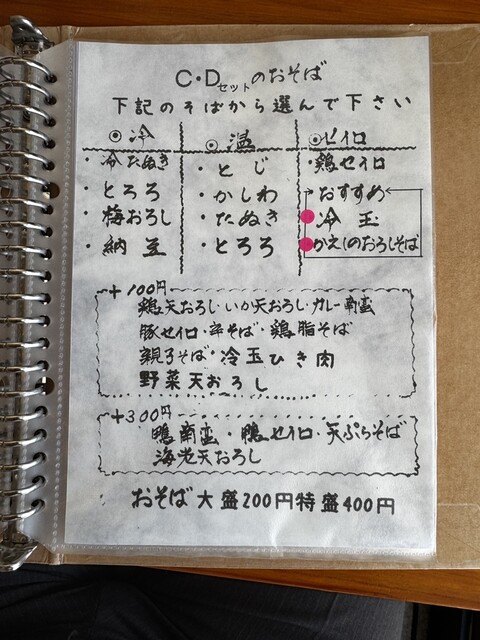 C・Dセットのおそば
下記のそばから選んで下さい
◉冷
・冷たぬき
・とろろ
・梅おろし
・納豆
◉温
・とじ
・かしわ
・たぬき
・とろろ
◉セイロ
・鶏セイロ
おすすめ
冷玉
かえしのおろしそば
+100円
鶏天おろし・いか天おろし・カレー南蛮
豚セイロ・辛そば・鶏脂そば
親子そば・冷玉ひき肉
野菜天おろし
+300円
鴨南蛮・鴨セイロ・天ぷらそば
海老天おろし
おそば大盛200円特盛400円